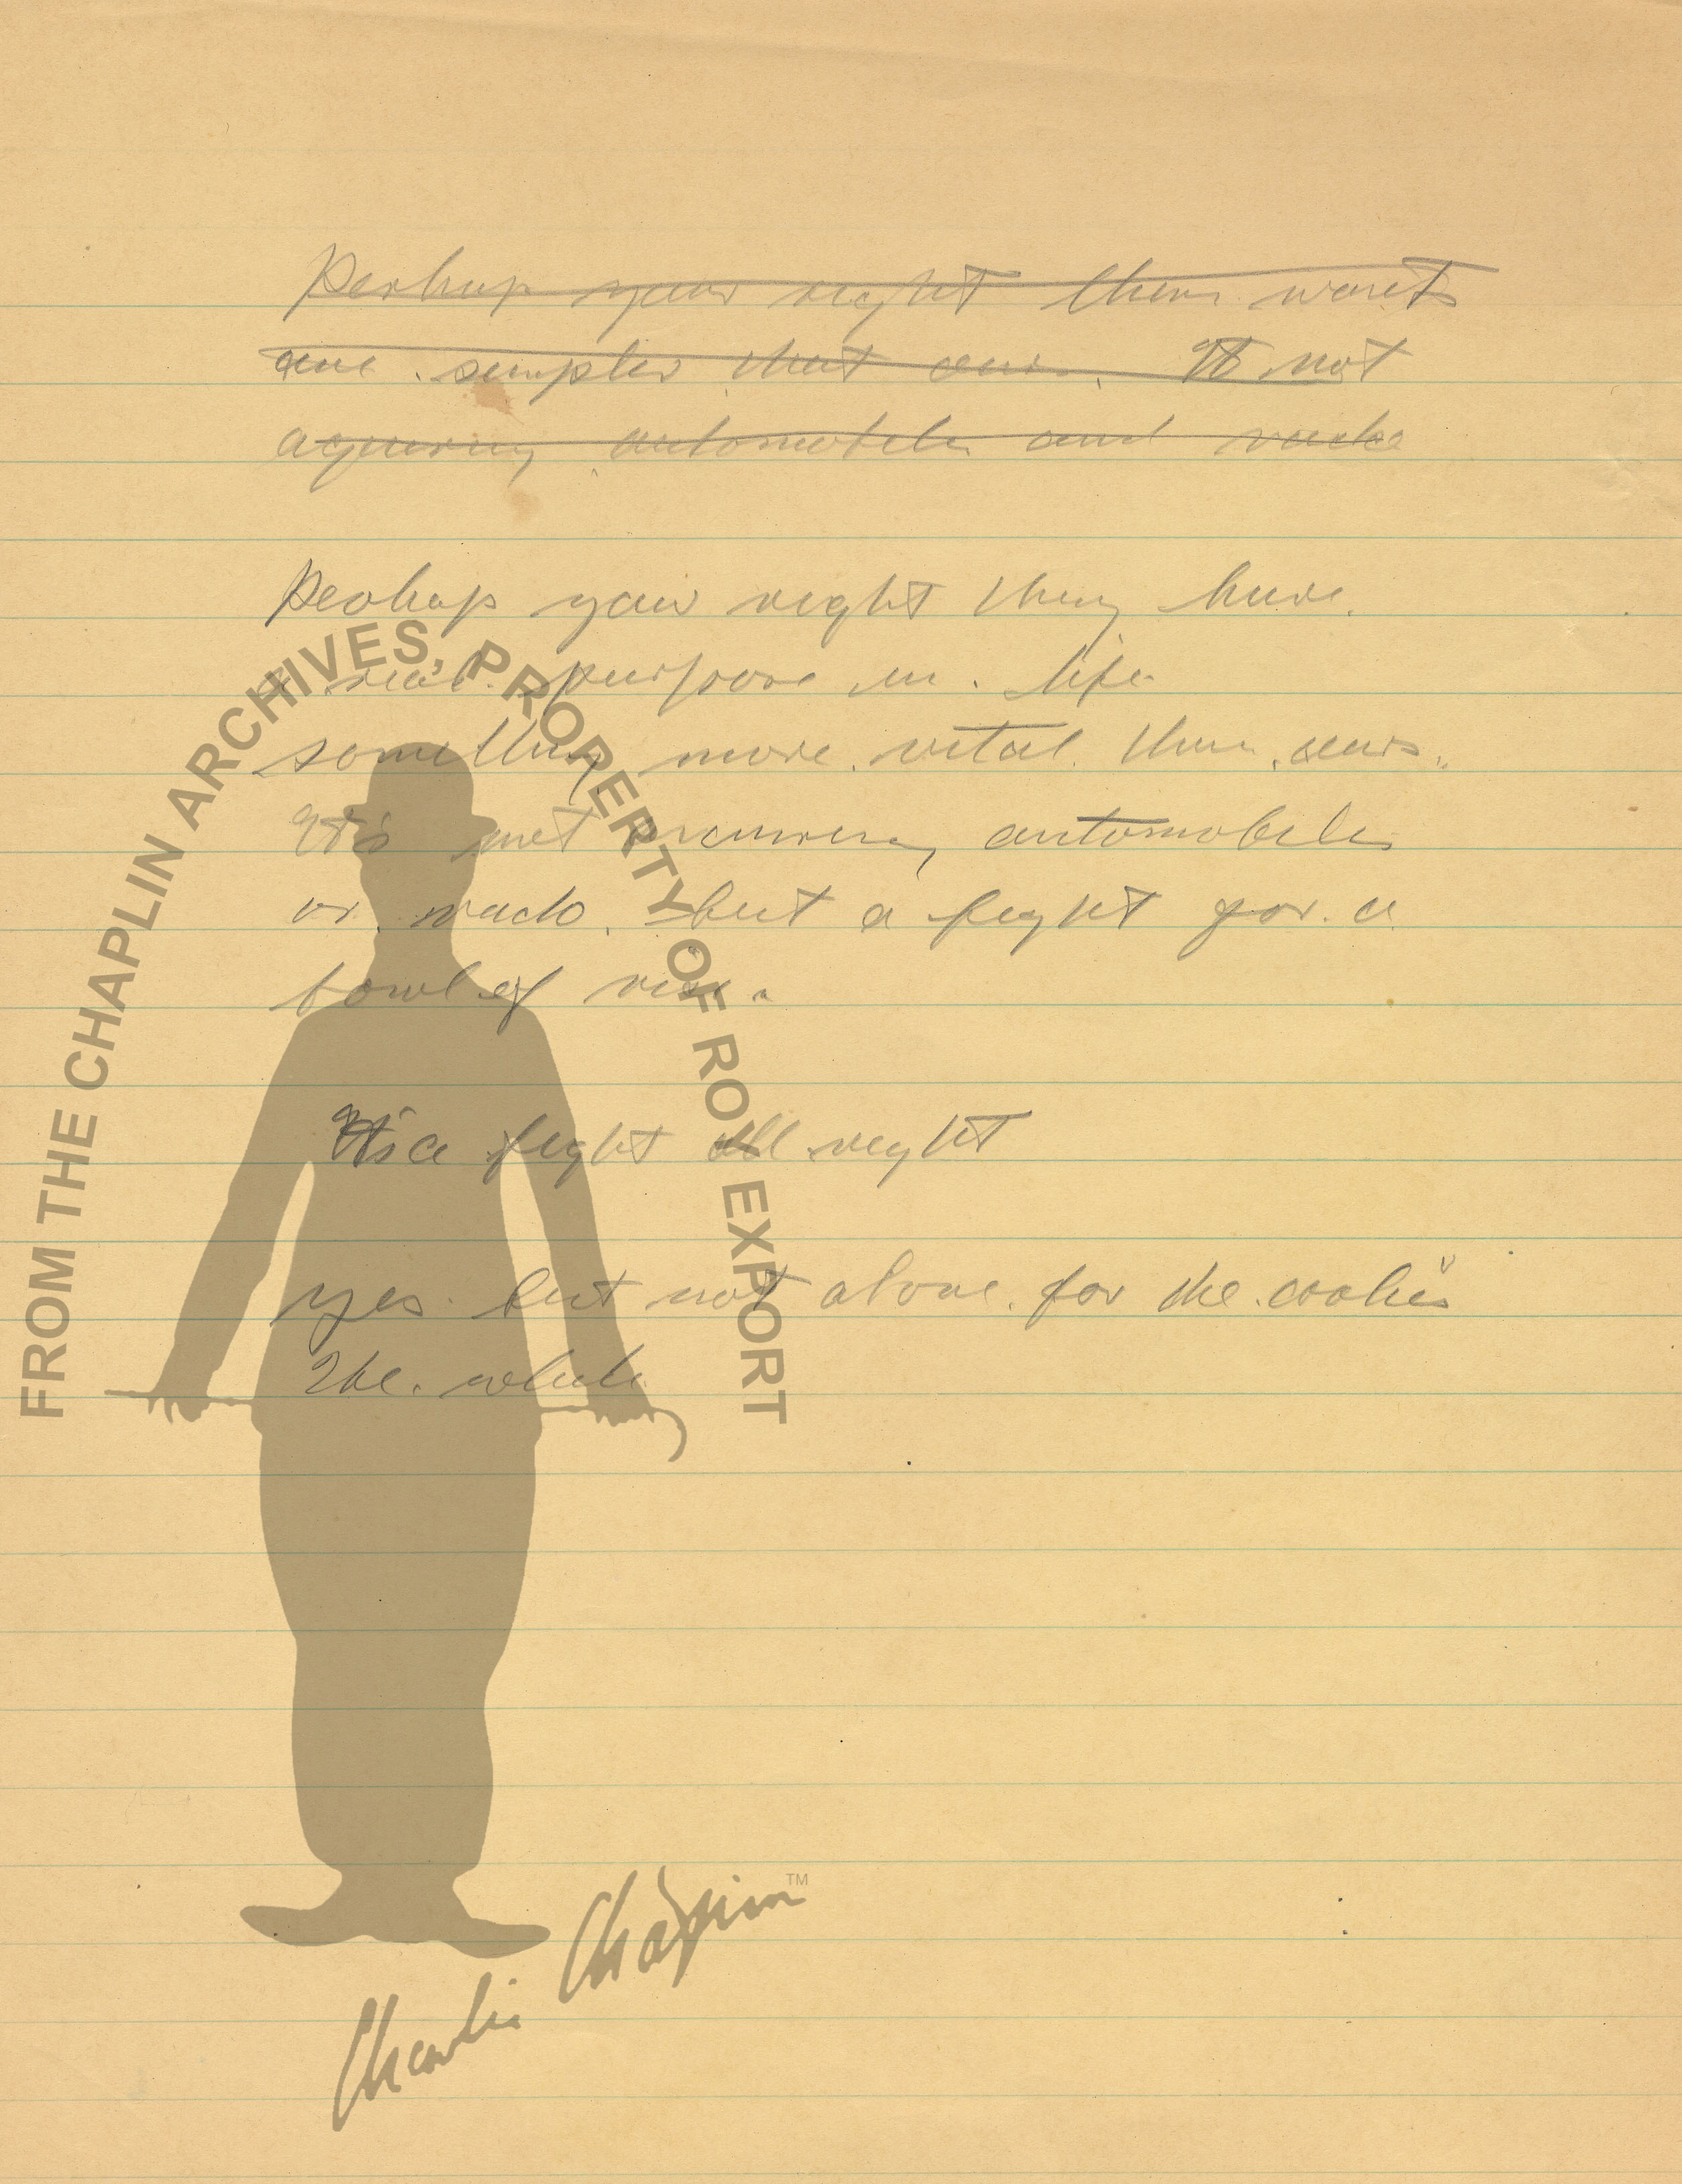 Perhap your right their wants
are simpler that ours. It not
aquiring automobiles and
Perhap your right they have
a real purpose in life
something more vital than ours.
It's not automobiles
or radio, but a fight for a
bowl of rice.
It's a fight all right
yes but not alone for the coolies
The white
FROM THE CHAPLIN ARCHIVES, PROPERTY OF ROY EXPORT
Charlie Chaplin™